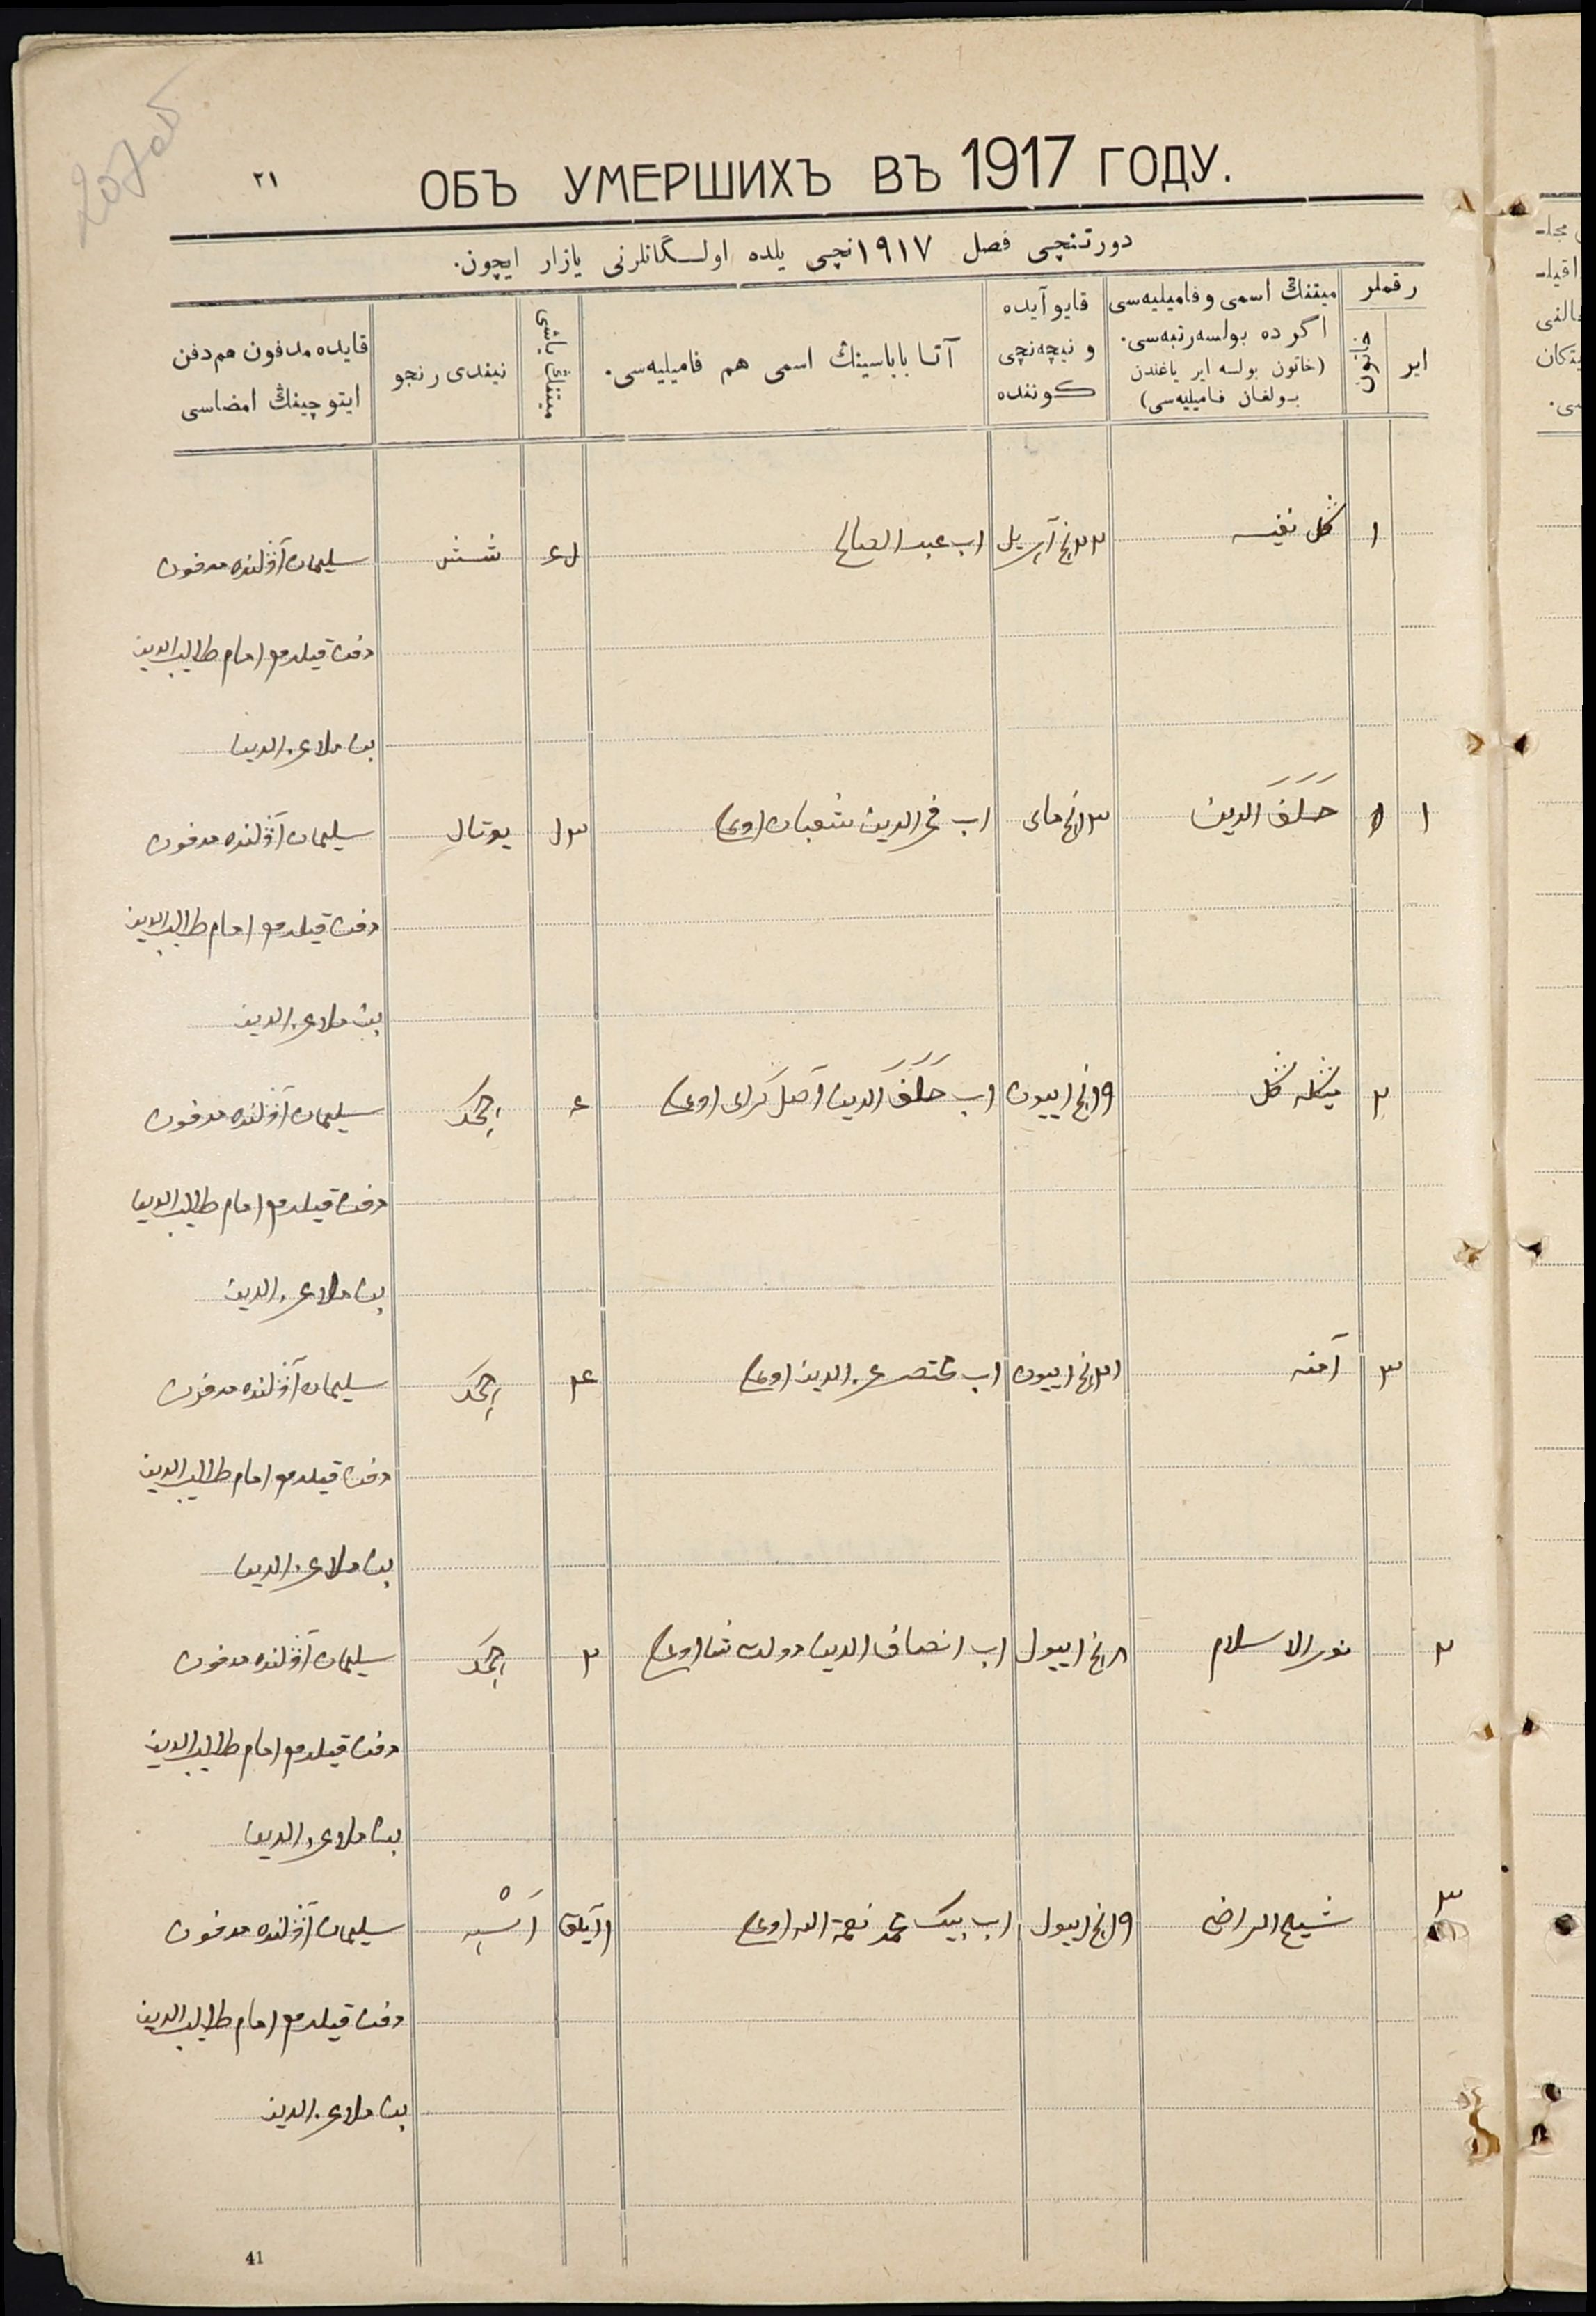 ٢١
ОБЪ УМЕРШИХЪ ВЪ 1917 ГОДУ.
دورتنچی فصل ١٩١٧نچی یلده اولـگانلرنی یازار ایچون.
رقملر
ایر
خاتون
میتنڭ اسمی و فامیلیه‌سی
اگر ده بولسه رتبه‌سی.
(خاتون بولسه ایر یاغندن
بولغان فامیلیه‌سی)
قایو آیده
و نیچه‌نچی
کوننده
آتا باباسینڭ اسمی هم فامیلیه‌سی.
میتنڭ یاشی
نیندی رنجو
قایده مدفون هم دفن
ایتوچینڭ امضاسی
١ گل نفیسه ٢٣نچ آپریل اب عبد الصالح سلیمان آوڵنده مدفون
دفن قیلدم امام طالب الدین
بن ملا عز الدین
١ خلف الدین ١٣نچ مای اب فخر الدین شعبان اوغلی یوتال سلیمان آوڵنده مدفون
دفن قیلدم امام طالب الدین
بن ملا عز الدین
٢ مینگله گل ١٩نچ اییون اب خلف الدین اصل گرای اوغلی ٤ چچک سلیمان آوڵنده مدفون
دفن قیلدم امام طالب الدین
بن ملا عز الدین
٣ آمنه ٢١نچ اییون اب مختصر عز الدین اوغلی چچک سلیمان آوڵنده مدفون
دفن قیلدم امام طالب الدین
بن ملا عز الدین
٢ نور الاسلام ١٨نچ اییول اب انصاف الدین دولت شا اوغلی ٢ چچک سلیمان آوڵنده مدفون
دفن قیلدم امام طالب الدین
بن ملا عز الدین
٣ شیخ الراضی ١٩نچ اییول اب بیک محمد نعمة الله اوغلی ١ آیلق سلیمان آوڵنده مدفون
دفن قیلدم امام طالب الدین
بن ملا عز الدین
41